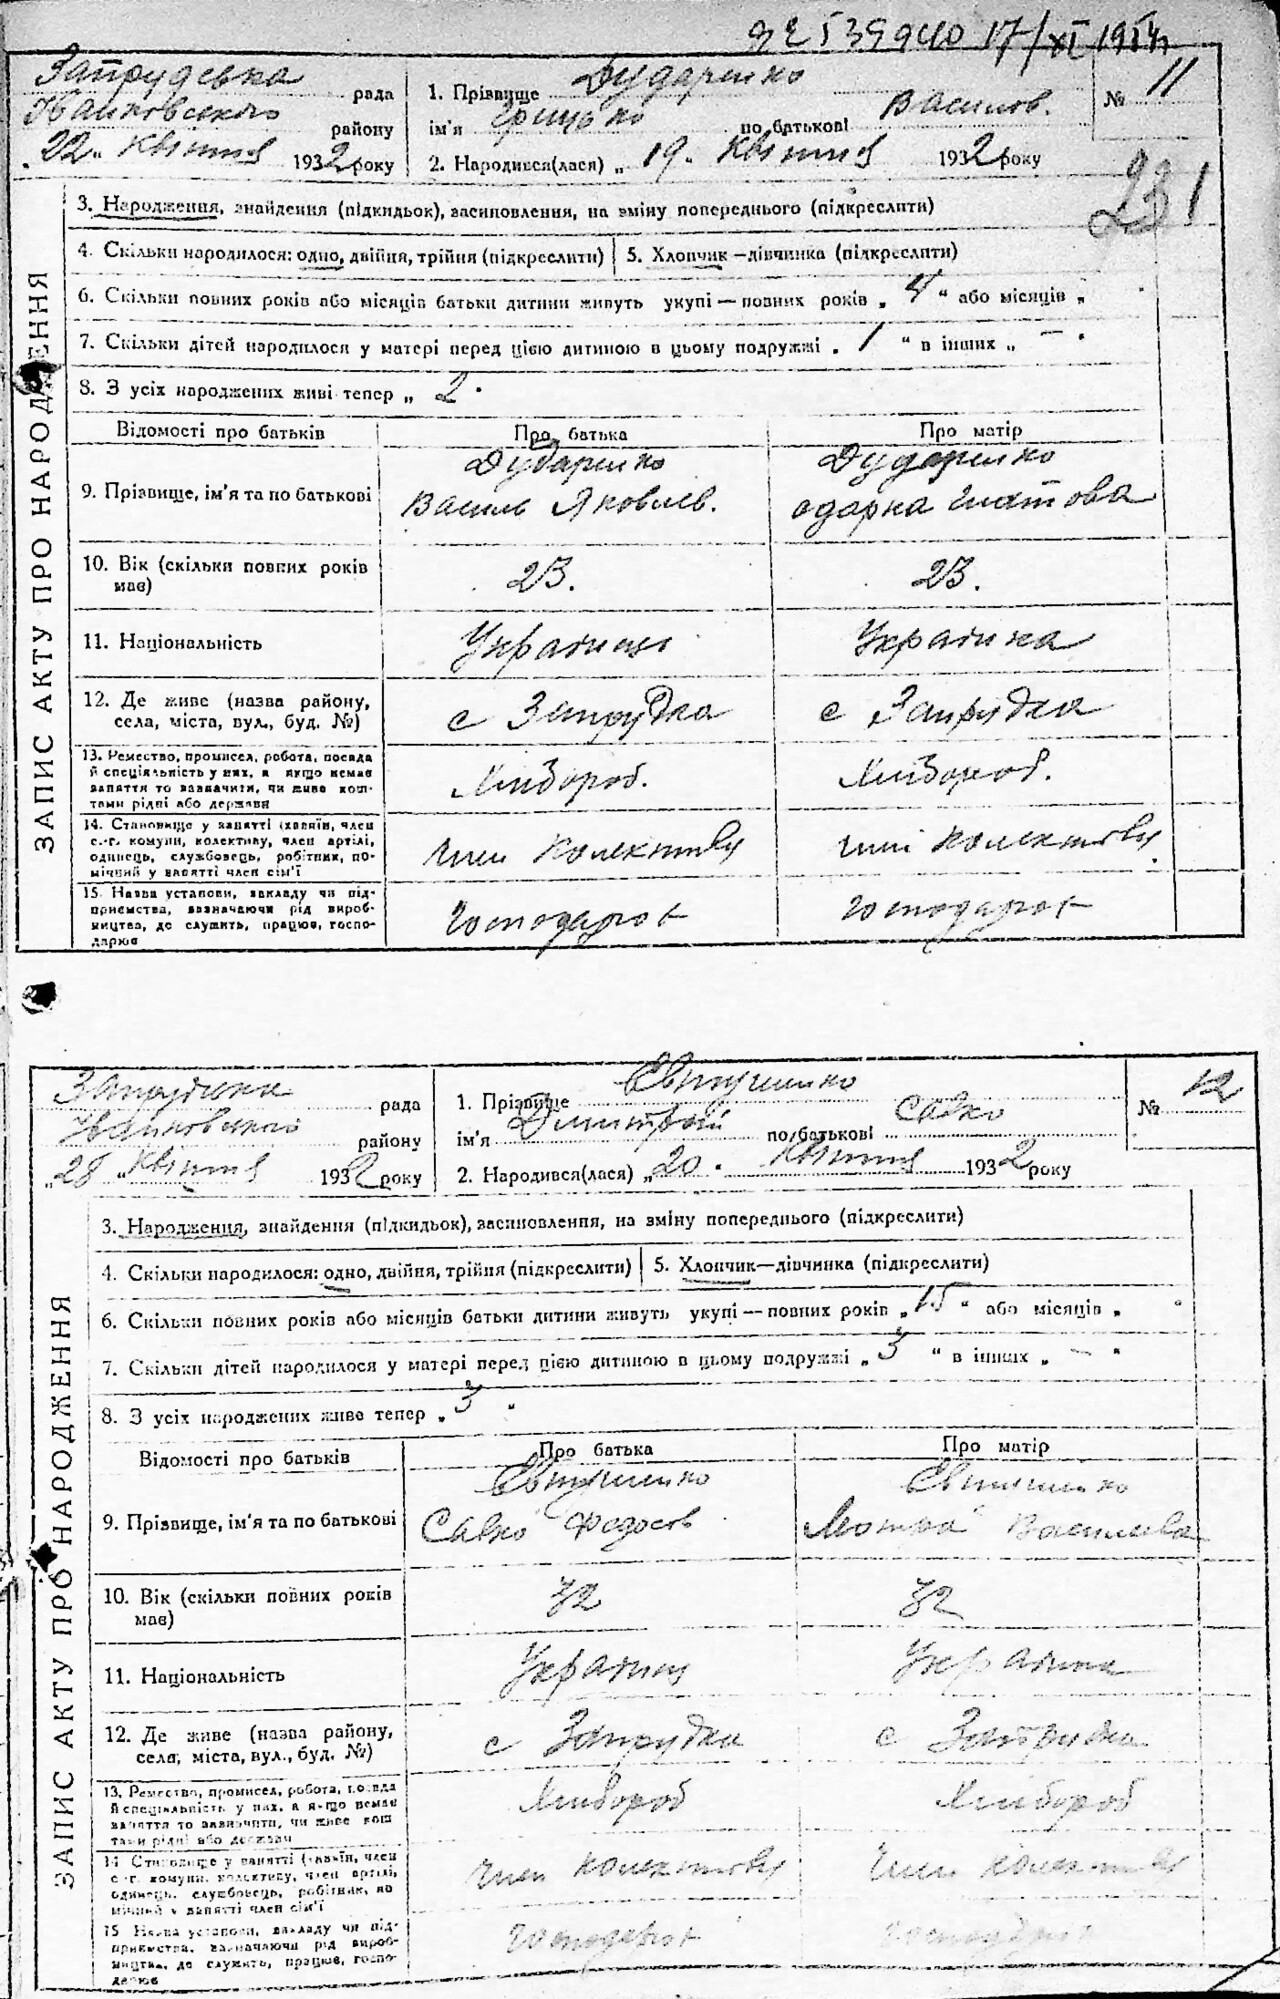 17/XI 1954
Запрудська рада
Іванковського району
„22„ Квітня 1932 року
1. Прізвище Дударенко
ім'я Грицько по батькові Василов.
2. Народився(лася) „19„ Квітня 1932 року
№ 11
231
ЗАПИС АКТУ ПРО НАРОДЖЕННЯ
3. Народження, знайдення (підкидьок), засиновлення, на зміну попереднього (підкреслити)
4. Скільки народилося: одно, двійня, трійня (підкреслити) 5. Хлопчик—дівчинка (підкреслити)
6. Скільки повних років або місяців батьки дитини живуть укупі—повних років „ 4 “ або місяців „
7. Скільки дітей народилося у матері перед цією дитиною в цьому подружжі „ 1 “ в інших „ — “
8. З усіх народжених живі тепер „ 2 “
Відомості про батьків Про батька Про матір
9. Прізвище, ім'я та по батькові Дударенко Василь Яковлев. Дударенко одарка
10. Вік (скільки повних років має) 23. 23.
11. Національність Українець Українка
12. Де живе (назва району, села, міста, вул., буд. №) с Запрудка с Запрудка
13. Ремество, промисел, робота, посада й спеціяльність у них, а якщо немає заняття то зазначити, чи живе коштами рідні або держави Хлибороб. Хлибороб.
14. Становище у занятті (хазяїн, член с.-г. комуни, колективу, член артілі, одинець, службовець, робітник, помічний у занятті член сім'ї Член колективу член колективу
15. Назва установи, закладу чи підприємства, зазначаючи рід виробництва, де служить, працює, господарює
Запрудська рада
Іванковського району
„28„ Квітня 1932 року
1. Прізвище Євтушенко
ім'я Дмитрий по батькові Савко
2. Народився(лася) „20„ Квітня 1932 року
№ 12
ЗАПИС АКТУ ПРО НАРОДЖЕННЯ
3. Народження, знайдення (підкидьок), засиновлення, на зміну попереднього (підкреслити)
4. Скільки народилося: одно, двійня, трійня (підкреслити) 5. Хлопчик—дівчинка (підкреслити)
6. Скільки повних років або місяців батьки дитини живуть укупі—повних років „ 15 “ або місяців „ “
7. Скільки дітей народилося у матері перед цією дитиною в цьому подружжі „ 3 “ в інших „ — “
8. З усіх народжених живе тепер „ 3 “
Відомості про батьків Про батька Про матір
9. Прізвище, ім'я та по батькові Євтушенко Савко Федосов Євтушенко Мотра Василева
10. Вік (скільки повних років має) 32 32
11. Національність Українец Українка
12. Де живе (назва району, села, міста, вул., буд. №) с Запрудка с Запрудка
13. Ремество, промисел, робота, посада й спеціяльність у них, а якщо немає заняття то зазначити, чи живе коштами рідні або держави Хлибороб Хлибороб
14 Становище у занятті (хазяїн, член с.-г. комуни, колективу, член артілі, одинець, службовець, робітник, помічний у занятті член сім'ї Член колективу Член колективу
15 Назва установи, закладу чи підприємства, зазначаючи рід виробництва, де служить, працює, господарює